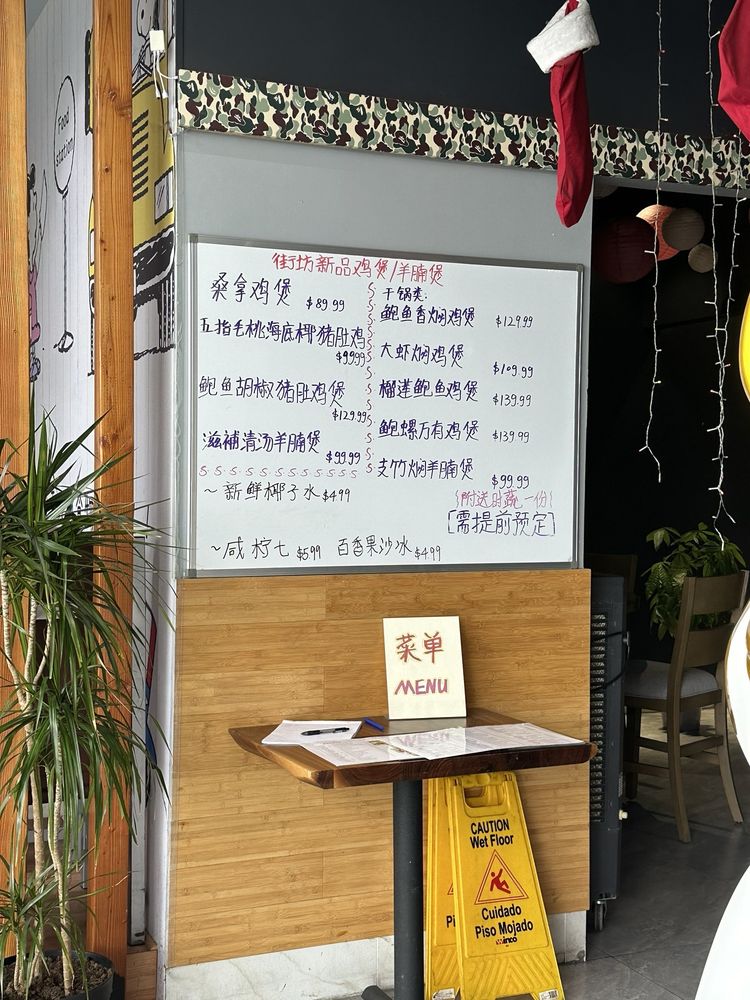 Food
Station
街坊新品鸡煲/羊腩煲
桑拿鸡煲 $89.99
五指毛桃海底椰猪肚鸡
$99.99
鲍鱼胡椒猪肚鸡煲
$129.99
滋補清汤羊腩煲
$99.99
干锅类:
鲍鱼香焖鸡煲 $129.99
大虾焖鸡煲 $109.99
榴莲鲍鱼鸡煲 $139.99
鲍螺万有鸡煲 $139.99
支竹焖羊腩煲 $99.99
附送时蔬一份
[需提前预定]
~新鲜椰子水 $4.99
~咸柠七 $5.99 百香果沙冰 $4.99
菜单
MENU
CAUTION
Wet Floor
Cuidado
Piso Mojado
winco